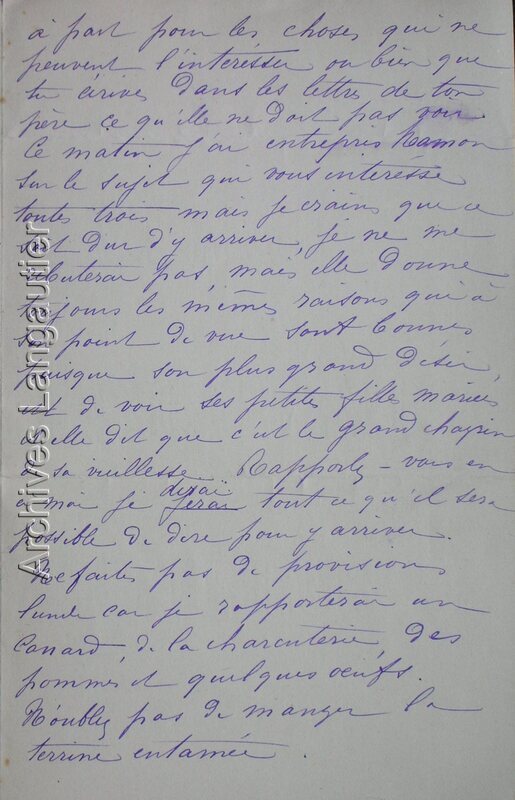 à part pour les choses qui ne
peuvent l'intéresser ou bien que
tu écrives dans les lettres de ton
père ce qu'elle ne doit pas voir.
Ce matin j'ai entrepris Mamon
sur le sujet qui vous intéresse
toutes trois mais je crains que ce
soit dur d'y arriver, je ne me
rebuterai pas, mais elle donne
toujours les mêmes raisons qui à
son point de vue sont bonnes
puisque son plus grand désir
est de voir ses petites filles mariées
et elle dit que c'est le grand chagrin
de sa vieillesse. Rapportez-vous en
à moi je ferai dirai tout ce qu'il sera
possible de dire pour y arriver.
Ne faites pas de provisions
lundi car je rapporterai un
canard, de la charcuterie, des
pommes et quelques oeufs.
N'oubliez pas de manger la
terrine entamée.
Archives Langautier